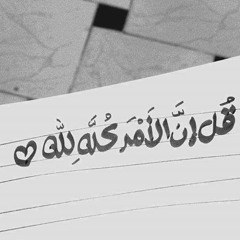 قُل إنَّ الأَمْرَ كُلَّهُ لِلّٰه ♡